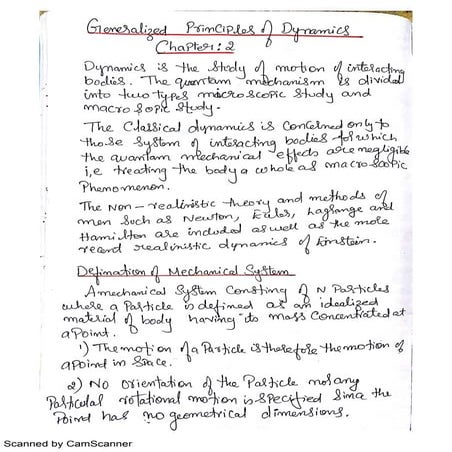 Generalized Principles of Dynamics
Chapter: 2
Dynamics is the study of motion of interacting
bodies. The quantam mechanism is divided
into two types microscopic study and
macrosopic study.
The Classical dynamics is concerned only to
those system of interacting bodies for which
the quantam mechanical effects are negligible
i,e treating the body a whole as macroscopic
Phenomenon.
The Non-realinistic theory and methods of
men such as Newton, Euler, Lagrange and
Hamilton are included as well as the more
recent realinistic dynamics of Einstein.
Defination of Mechanical System
A mechanical System Consting of N Particles
where a Particle is defined as an idealized
material of body having to mass Concentrated at
a Point.
1) The motion of a Particle is therefore the motion of
a Point in Space.
2) No orientation of the Particle nor any
Particular rotational motion is specified Since the
Point has no geometrical dimensions.
Scanned by CamScanner